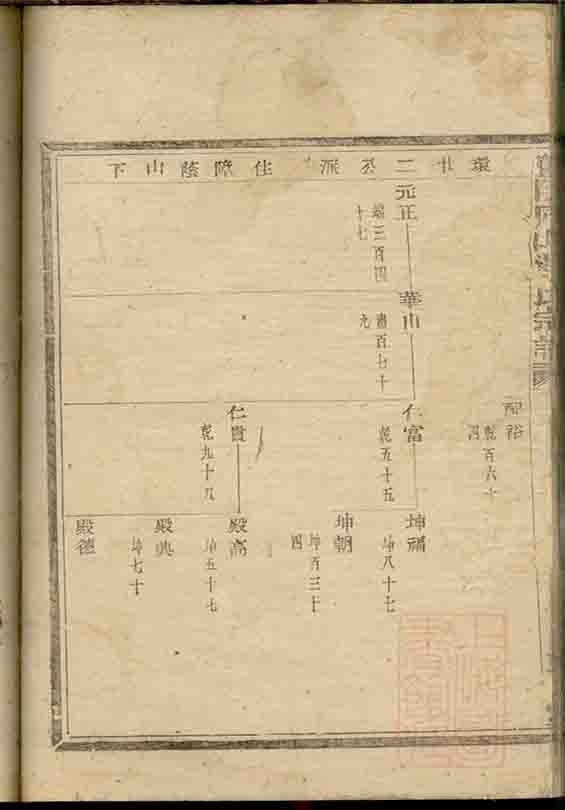 二公派住障蔭山下
元正
端三百四
十七
華山
肅百七十
九
仁富
乾五十五
坤福
坤八十七
坤朝
坤百三十
四
仁貴
乾九十八
殿高
坤五十七
殿典
坤七十
殿德
裕
乾百六十
四
氏宗譜